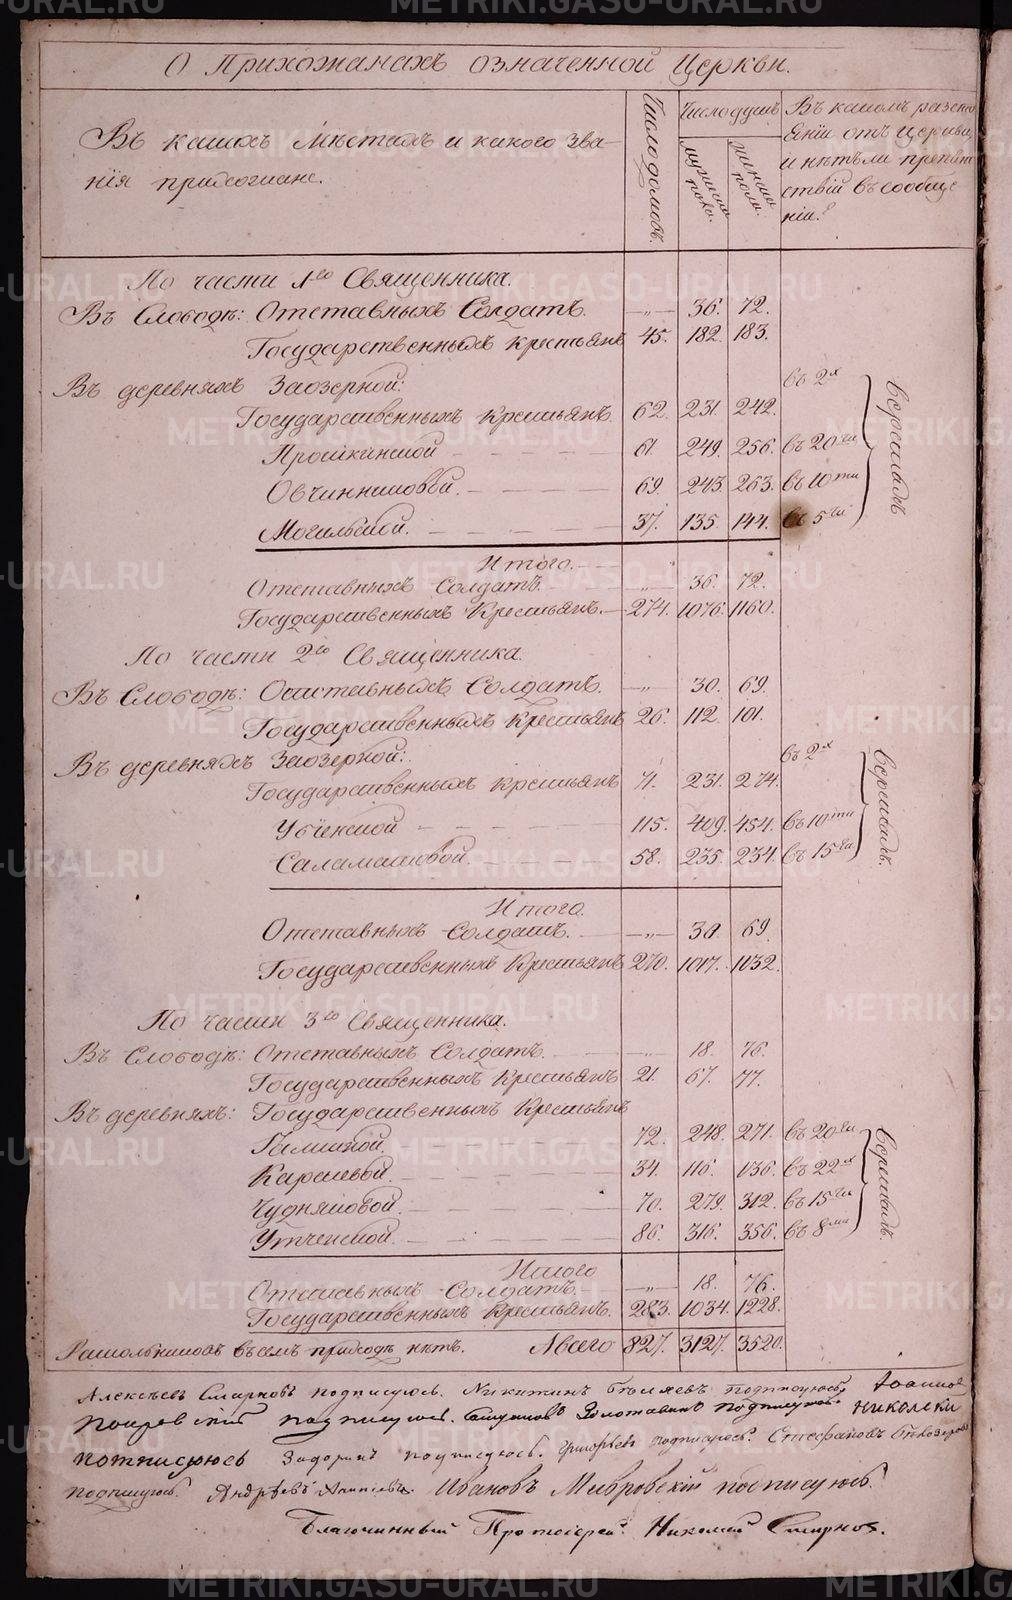 О Прихожанахъ означенной Церкви.
Въ какихъ мѣстахъ и какого зва-
нія прихожане.
Число домовъ.
Число душъ
мужеска пола.
женска пола.
Въ какомъ разсто
яніи отъ церкви,
и нѣтъ ли препят
ствій въ сообще
ніи?
По части 1го Священника.
Въ Слободѣ: Отставныхъ Солдатъ. —„— 36. 72.
Государственныхъ крестьянъ 45. 182. 183.
Въ деревняхъ Заозерной: въ 2х
Государственныхъ Крестьянъ. 62. 231. 242.
Пройкинской 61. 249. 256. въ 20ти
Овчинниковой. 69. 243. 263. въ 10ти
Могильской. 37. 135. 144. въ 5ти
верстахъ
Итого.
Отставныхъ Солдатъ. „ 36. 72.
Государственныхъ Крестьянъ. 274. 1076. 1160.
По части 2го Священника.
Въ Слободѣ: Отставныхъ Солдатъ. —„— 30. 69.
Государственныхъ Крестьянъ 26. 112. 101.
Въ деревняхъ Заозерной: въ 2х
Государственныхъ Крестьянъ 71. 231. 274.
115. 409. 454. въ 10ти
Саламатовой. 58. 235. 234. въ 15ти
верстахъ.
Итого.
Отставныхъ Солдатъ. —„— 30. 69.
Государственныхъ Крестьянъ 270. 1017. 1032.
По части 3го Священника.
Въ Слободѣ: Отставныхъ Солдатъ. —„— 18. 76.
Государственныхъ Крестьянъ 21. 67. 77.
Въ деревняхъ: Государственныхъ Крестьянъ
Галкиной. 72. 248. 271. въ 20ти
Карасевой. 34. 116. 136. въ 22х
Чудняковой. 70. 279. 312. въ 15ти
Утченской. 86. 316. 356. въ 8ми
верстахъ.
Итого
Отставныхъ Солдатъ. —„— 18. 76.
Государственныхъ Крестьянъ. 283. 1034. 1228.
Раскольниковъ въ семъ приходѣ нѣтъ. А всего 827. 3127. 3520.
Алексѣевъ Смирновъ подписуюсь. Никитинъ подписуюсь
подписуюсь. Золотавинъ подписуюсь. Никольскій
подписуюсь Задоринъ подписуюсь. Григорьевъ подписуюсь. Стефановъ Бѣлозеровъ
подписуюсь. Андрѣевъ Ивановъ подписуюсь.
Благочинный Протоіерей Николай Смирновъ.
METRIKI.GASO-URAL.RU